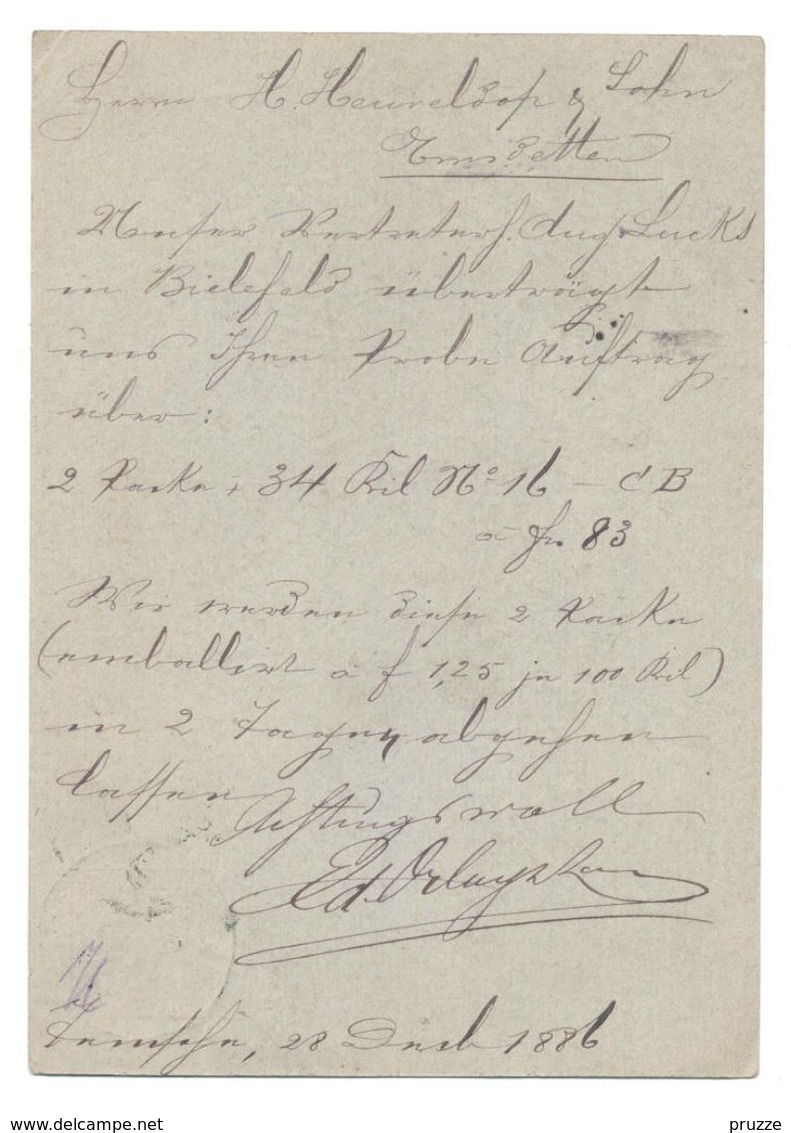 Herrn H. Heuveldop & Sohn
Emsdetten
Unser Vertreter H. Aug. Lucks
in Bielefeld überträgt
uns Ihren Probe Auftrag
über:
2 Packe + 34 Kil No 16 – CB
a fr. 83
Wir werden diese 2 Packe
(emballirt a f 1,25 je 100 Kil)
in 2 Tagen abgehen
lassen
Achtungsvoll
Ed.
Temsche, 28 Decb 1886
delcampe.net
pruzze